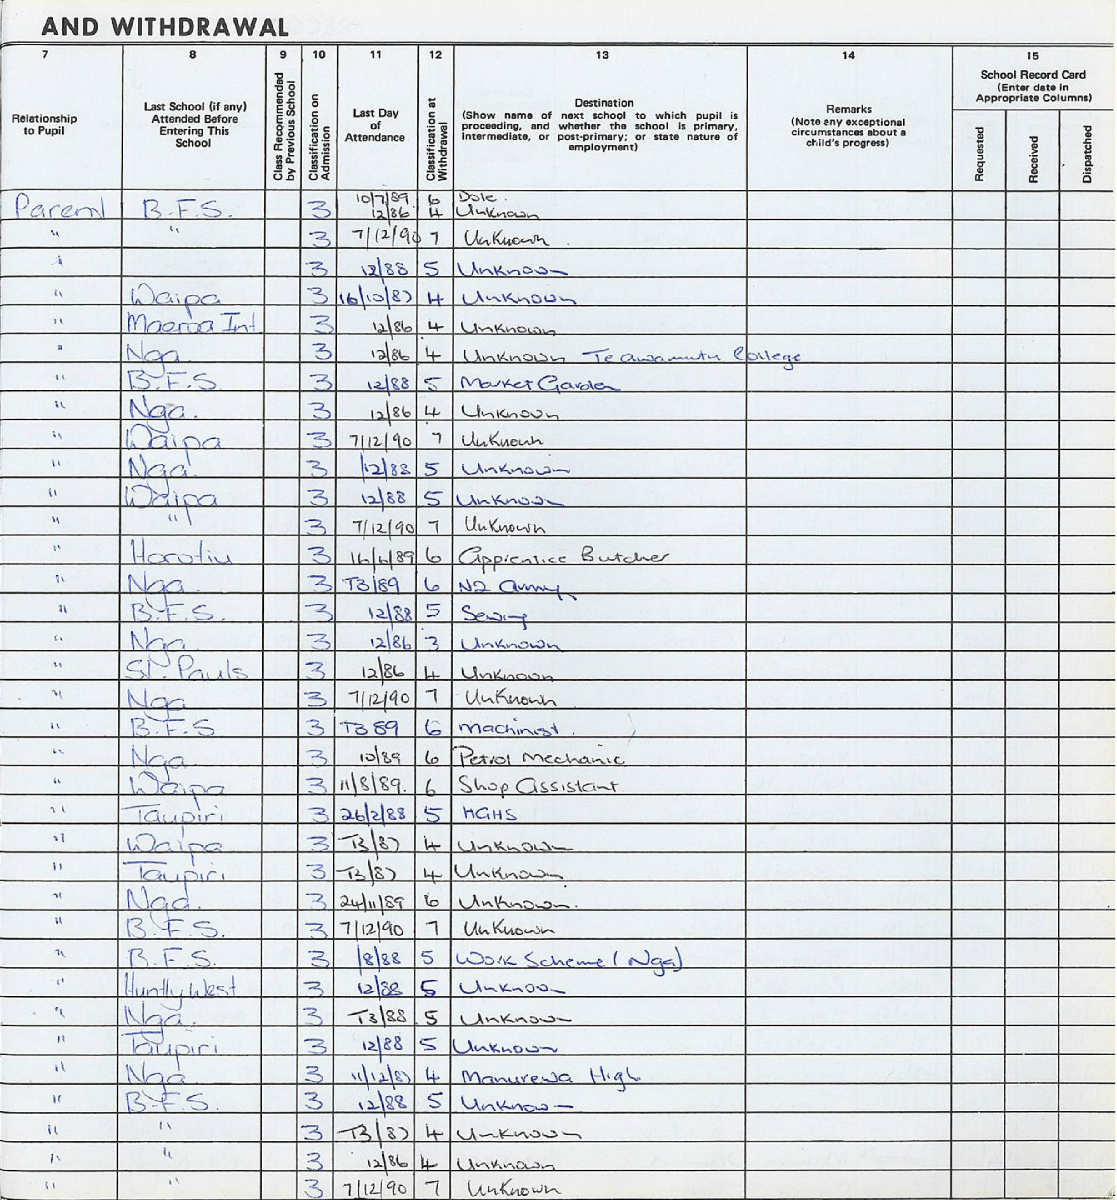 AND WITHDRAWAL
7 8 9 10 11 12 13 14 15
Relationship to Pupil
Last School (if any) Attended Before Entering This School
Class Recommended by Previous School
Classification on Admission
Last Day of Attendance
Classification at Withdrawal
Destination
(Show name of next school to which pupil is proceeding, and whether the school is primary, intermediate, or post-primary; or state nature of employment)
Remarks
(Note any exceptional circumstances about a child's progress)
School Record Card
(Enter date in Appropriate Columns)
Requested
Received
Dispatched
10/7/89 6 Dole.
Parent B.F.S. 3 12/86 4 Unknown
" " 3 7/12/90 7 UnKnown
" 3 12/88 5 Unknown
" Waipa 3 16/10/87 4 Unknown
" Maeroa Int 3 12/86 4 Unknown
" Nga. 3 12/86 4 Unknown Te awamutu College
" B.F.S 3 12/88 5 Market Garden
" Nga. 3 12/86 4 Unknown
" Waipa 3 7/12/90 7 UnKnown
" Nga. 3 12/88 5 Unknown
" Waipa 3 12/88 5 Unknown
" " 3 7/12/90 7 UnKnown
" Horotiu 3 16/6/89 6 Apprentice Butcher
" Nga. 3 T3/89 6 NZ Army
" B.F.S. 3 12/88 5 Sewing
" Nga. 3 12/86 3 Unknown
" St. Pauls 3 12/86 4 Unknown
" Nga 3 7/12/90 7 UnKnown
" B.F.S 3 T3 89 6 Machinist.
" Nga. 3 10/89 6 Petrol Mechanic
" Waipa 3 11/8/89. 6 Shop Assistant
" Taupiri 3 26/2/88 5 HGHS
" Waipa 3 T3/87 4 Unknown
" Taupiri 3 T3/87 4 Unknown
" Nga. 3 24/11/89 6 Unknown.
" B.F.S. 3 7/12/90 7 UnKnown
" B.F.S. 3 /8/88 5 Work Scheme (Nga)
" Huntly West 3 12/88 5 Unknown
" Nga. 3 T3/88 5 Unknown
" Taupiri 3 12/88 5 Unknown
" Nga 3 11/12/87 4 Manurewa High
" B.F.S. 3 12/88 5 Unknown
" " 3 T3/87 4 Unknown
" " 3 12/86 4 Unknown
" " 3 7/12/90 7 UnKnown